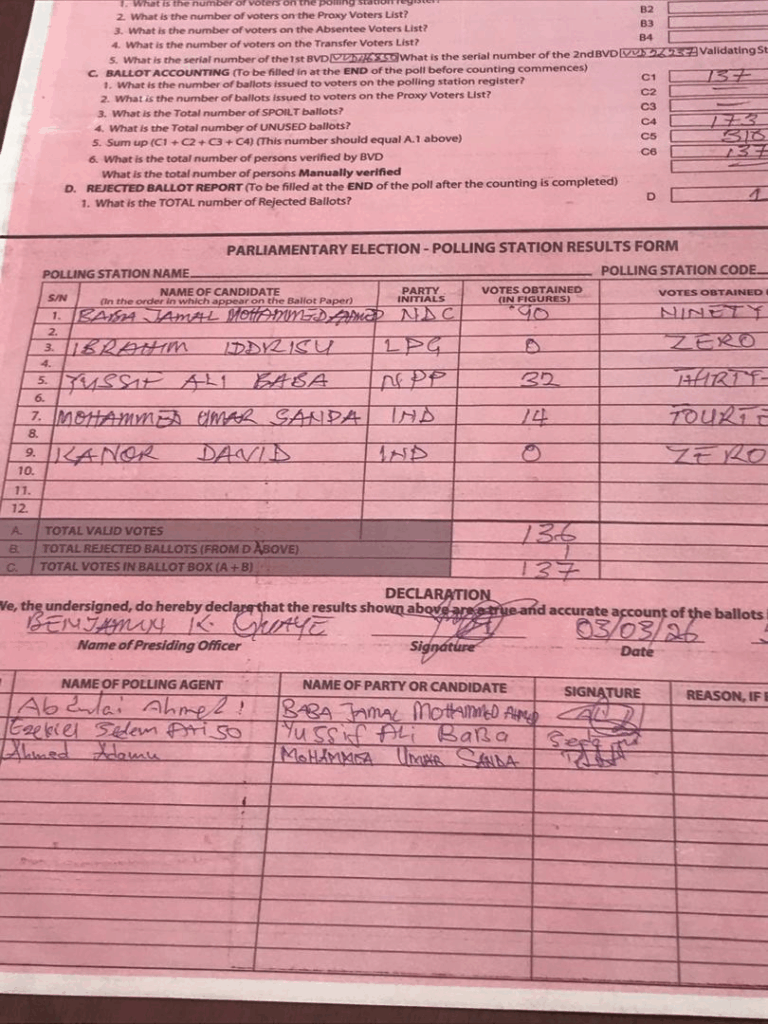 1. What is the number of voters on the polling station register?
2. What is the number of voters on the Proxy Voters List? B2
3. What is the number of voters on the Absentee Voters List? B3
4. What is the number of voters on the Transfer Voters List? B4
5. What is the serial number of the 1st BVD What is the serial number of the 2nd BVD Validating St
C. BALLOT ACCOUNTING (To be filled in at the END of the poll before counting commences)
1. What is the number of ballots issued to voters on the polling station register? C1 137
2. What is the number of ballots issued to voters on the Proxy Voters List? C2 —
3. What is the Total number of SPOILT ballots? C3 —
4. What is the Total number of UNUSED ballots? C4 173
5. Sum up (C1 + C2 + C3 + C4) (This number should equal A.1 above) C5 310
6. What is the total number of persons verified by BVD C6 137
What is the total number of persons Manually verified —
D. REJECTED BALLOT REPORT (To be filled at the END of the poll after the counting is completed)
1. What is the TOTAL number of Rejected Ballots? D 1
PARLIAMENTARY ELECTION - POLLING STATION RESULTS FORM
POLLING STATION NAME POLLING STATION CODE
S/N NAME OF CANDIDATE (In the order in which appear on the Ballot Paper) PARTY INITIALS VOTES OBTAINED (IN FIGURES) VOTES OBTAINED
1. BABA JAMAL MOHAMMED AHMED NDC 90 NINETY
2.
3. IBRAHIM IDDRISU LPG 0 ZERO
4.
5. YUSSIF ALI BABA NPP 32 THIRTY-
6.
7. MOHAMMED UMAR SANDA IND 14 FOURTE
8.
9. KANOR DAVID IND 0 ZERO
10.
11.
12.
A. TOTAL VALID VOTES 136
B. TOTAL REJECTED BALLOTS (FROM D ABOVE) 1
C. TOTAL VOTES IN BALLOT BOX (A + B) 137
DECLARATION
We, the undersigned, do hereby declare that the results shown above are a true and accurate account of the ballots
BENJAMIN K. GHAYE 03/03/26
Name of Presiding Officer Signature Date
NAME OF POLLING AGENT NAME OF PARTY OR CANDIDATE SIGNATURE REASON, IF
Abdulai Ahmed BABA JAMAL MOHAMMED AHMED
Ezekiel Sedem YUSSIF ALI BABA
Ahmed Adamu MOHAMMED UMAR SANDA